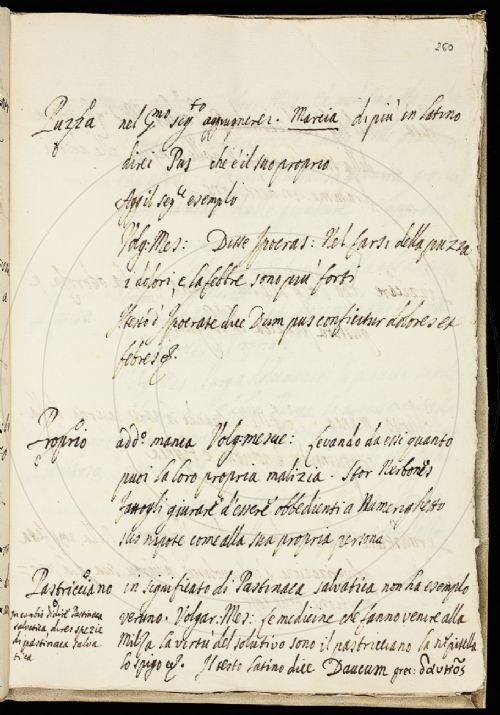 260
Puzza nel Gmo segto aggiugnerei. Marcia di più in latino
direi Pus che è il suo proprio
Agg il segte esempio
Volg: Mes: Disse Ipocras: Nel farsi della puzza
i dolori, e la febbre sono più forti
Il testo d' Ipocrate dice Dum pus conficitur dolores et
febres &.
Proprio addo manca Volg: mesue: Levando da essi quanto
puoi la loro propria malizia. Stor Nerbones
fattogli giurare d'essere obbedienti a Namerighetto
suo nipote come alla sua propria persona
Pastricciano in significato di Pastinaca salvatica non ha esempio
in cambio di dire Pastinaca
salvatica, direi spezie
di pastinaca salva
tica
veruno. Volgar: Mes: le medicine che fanno venire alla
Milza la virtù del solutivo sono il pastricciano la
lo spigo &. Il testo latino dice Daucum grec: